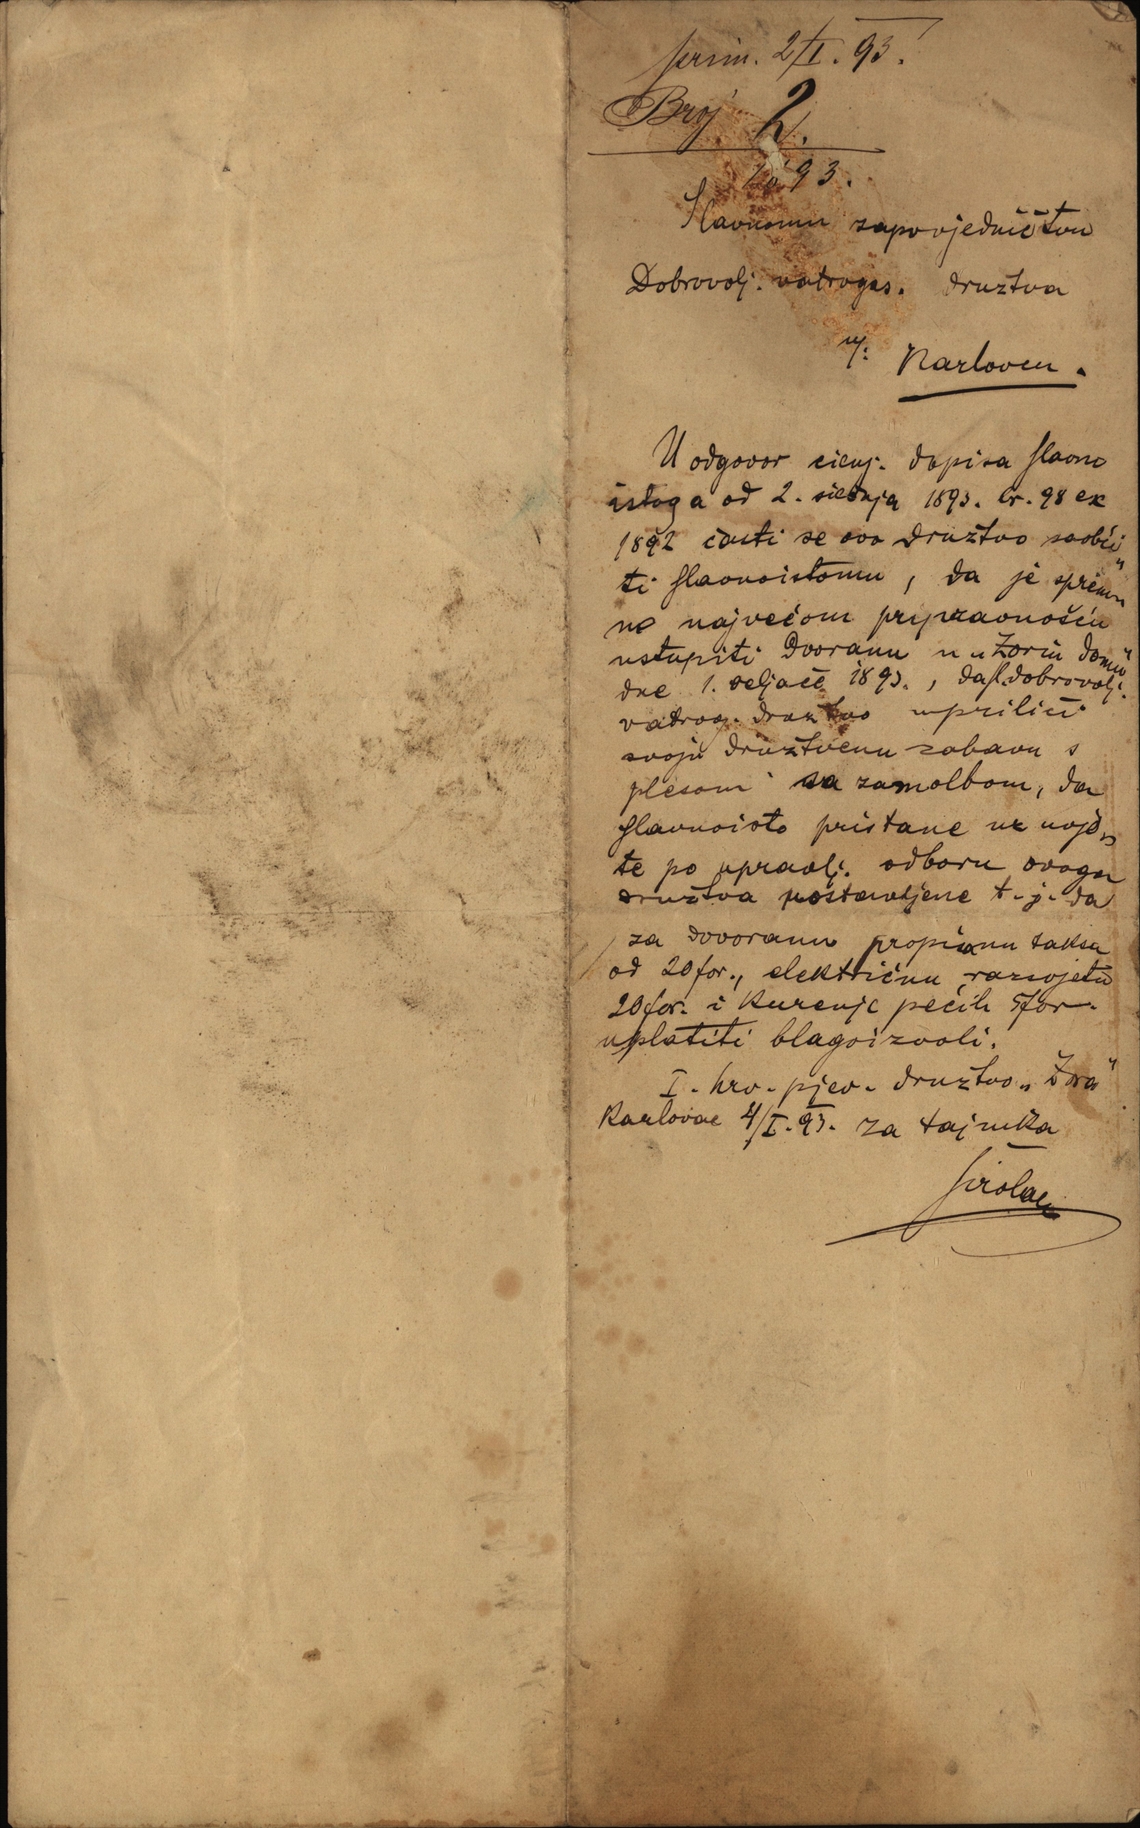 prim. 2/I. 93.
Broj 2.
1893.
Slavnomu zapovjedničtvu
Dobrovolj. vatrogas. družtva
u:
Karlovcu.
U odgovor cienj. dopisa slavno
istoga od 2. siečnja 1893. br. 98 ex
1892 časti se ovo družtvo saobći
ti slavnoistomu, da je spremn
no najvećom pripravnošću
ustupiti dvoranu u "Zorin domu"
dne 1. veljače 1893., da sl. dobrovolj.
vatrog. družtvo upriliči
svoju družtvenu zabavu s
plesom sa zamolbom, da
slavnoisto pristane uz uvje„
te po upravlj. odboru ovoga
družtva postavljene t. j. da
za dovoranu propisanu taksu
od 20 for., električnu razsvjetu
20 for. i kurenje pećih 5 for.
uplatiti blagoizvoli.
I. hrv. pjev. družtvo „Zora"
Karlovac 4/I. 93. za tajnika